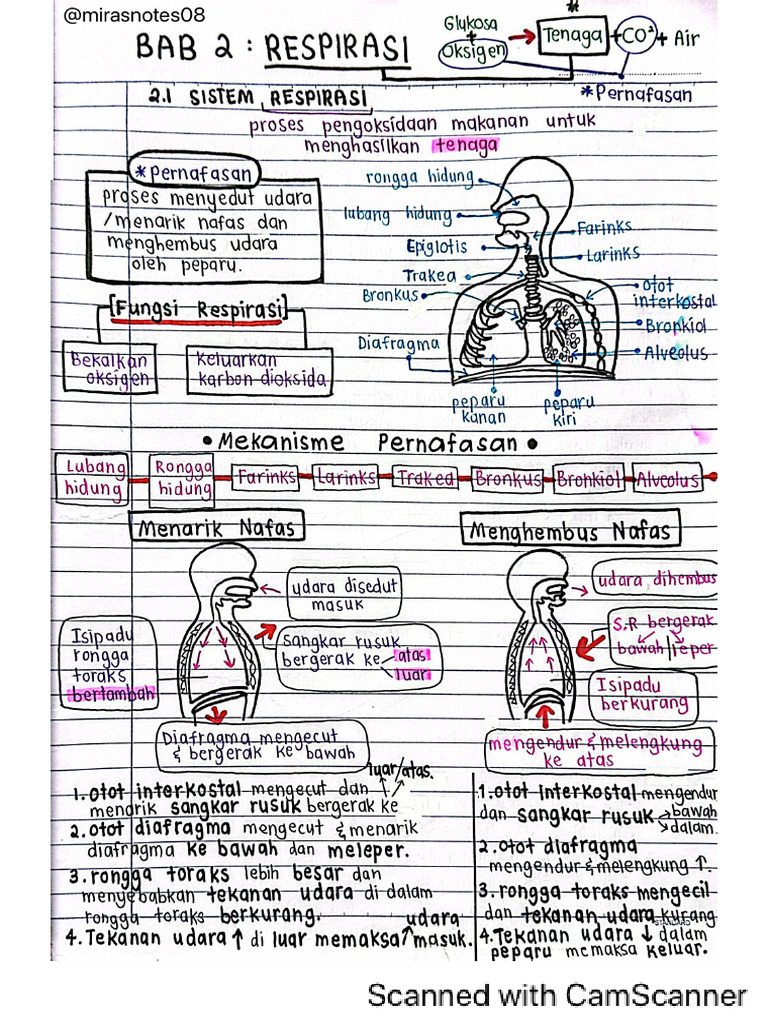 @mirasnotes08
BAB 2 : RESPIRASI
Glukosa
+
Oksigen → *Tenaga + CO² + Air
*Pernafasan
2.1 SISTEM RESPIRASI
proses pengoksidaan makanan untuk
menghasilkan tenaga
*Pernafasan
proses menyedut udara
/menarik nafas dan
menghembus udara
oleh peparu.
[Fungsi Respirasi]
Bekalkan
oksigen
Keluarkan
karbon dioksida
rongga hidung
lubang hidung
Epiglotis
Trakea
Bronkus
Diafragma
Farinks
Larinks
otot
interkostal
Bronkiol
Alveolus
peparu
kanan
peparu
kiri
• Mekanisme Pernafasan •
Lubang
hidung
Rongga
hidung
Farinks
Larinks
Trakea
Bronkus
Bronkiol
Alveolus
Menarik Nafas
udara disedut
masuk
Isipadu
rongga
toraks
bertambah
Sangkar rusuk
bergerak ke atas
luar
Diafragma mengecut
& bergerak ke bawah
1. otot interkostal mengecut dan luar/atas.
menarik sangkar rusuk bergerak ke
2. otot diafragma mengecut & menarik
diafragma ke bawah dan meleper.
3. rongga toraks lebih besar dan
menyebabkan tekanan udara di dalam
rongga toraks berkurang.
4. Tekanan udara ↑ di luar memaksa udara masuk.
Menghembus Nafas
udara dihembus
S.R bergerak
bawah
Isipadu
berkurang
mengendur & melengkung
ke atas
1. otot interkostal mengendur
dan sangkar rusuk → bawah
→ dalam.
2. otot diafragma
mengendur & melengkung ↑.
3. rongga toraks mengecil
dan tekanan udara kurang
4. Tekanan udara ↓ dalam
peparu memaksa keluar.
Scanned with CamScanner